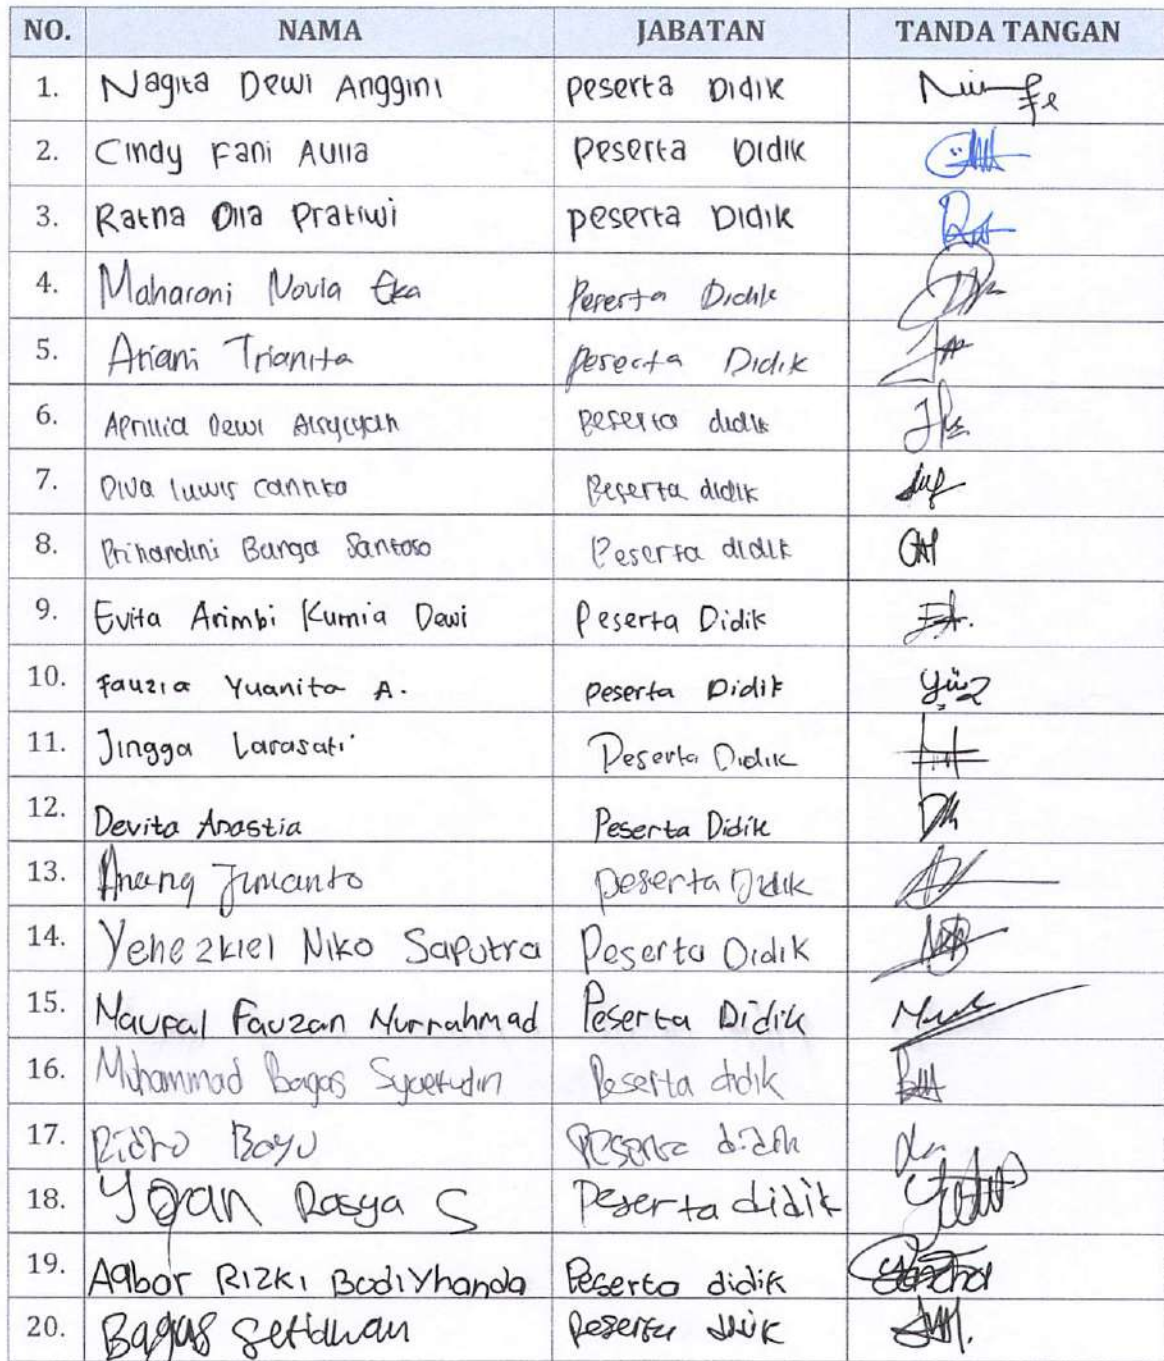 NO. NAMA JABATAN TANDA TANGAN
1. Nagita Dewi Anggini Peserta Didik
2. Cindy Fani Aulia Peserta Didik
3. Ratna Olla Pratiwi Peserta Didik
4. Maharani Novia Eka Peserta Didik
5. Ariani Trianita Peserta Didik
6. Aprilia Dewi Peserta didik
7. Diva luwis Peserta didik
8. Prihardini Bunga Santoso Peserta didik
9. Evita Arimbi Kurnia Dewi Peserta Didik
10. Fauzia Yuanita A. Peserta Didik
11. Jingga Larasati Peserta Didik
12. Devita Anastia Peserta Didik
13. Anang Jumanto Peserta Didik
14. Yehezkiel Niko Saputra Peserta Didik
15. Naufal Fauzan Nurrahmad Peserta Didik
16. Muhammad Bagas Syaefudin Peserta didik
17. Ridho Bayu Peserta didik
18. Yogan Rasya S Peserta didik
19. Aqbar Rizki Budiyhanda Peserta didik
20. Bagas Setiawan Peserta didik